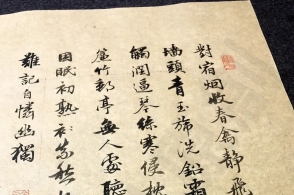 對宿烟收春禽靜飛
墻頭青玉旆洗鉛霜
觸潤逼琴絲寒侵枕
簾竹郵亭無人處聽
困眠初熟奈愁
難記自憐幽獨